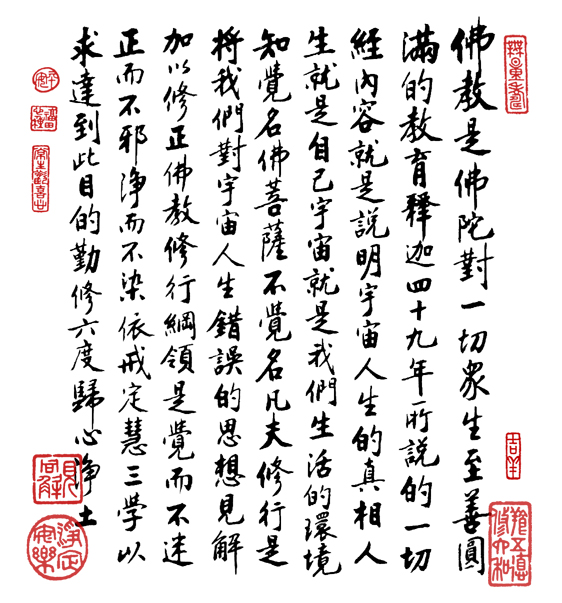 佛教是佛陀對一切眾生至善圓
滿的教育釋迦四十九年所說的一切
經內容就是說明宇宙人生的真相人
生就是自己宇宙就是我們生活的環境
知覺名佛菩薩不覺名凡夫修行是
將我們對宇宙人生錯誤的思想見解
加以修正佛教修行綱領是覺而不迷
正而不邪淨而不染依戒定慧三學以
求達到此目的勤修六度歸心淨土
吉羊